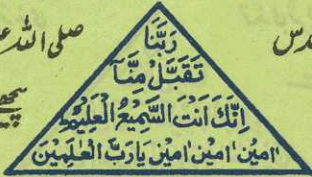 صلی اللہ
رَبَّنَا
تَقَبَّلْ مِنَّا
اِنَّكَ اَنْتَ السَّمِيْعُ الْعَلِيْمُ
اٰمين اٰمين اٰمين يَارَبَّ الْعٰلَمِيْنَ